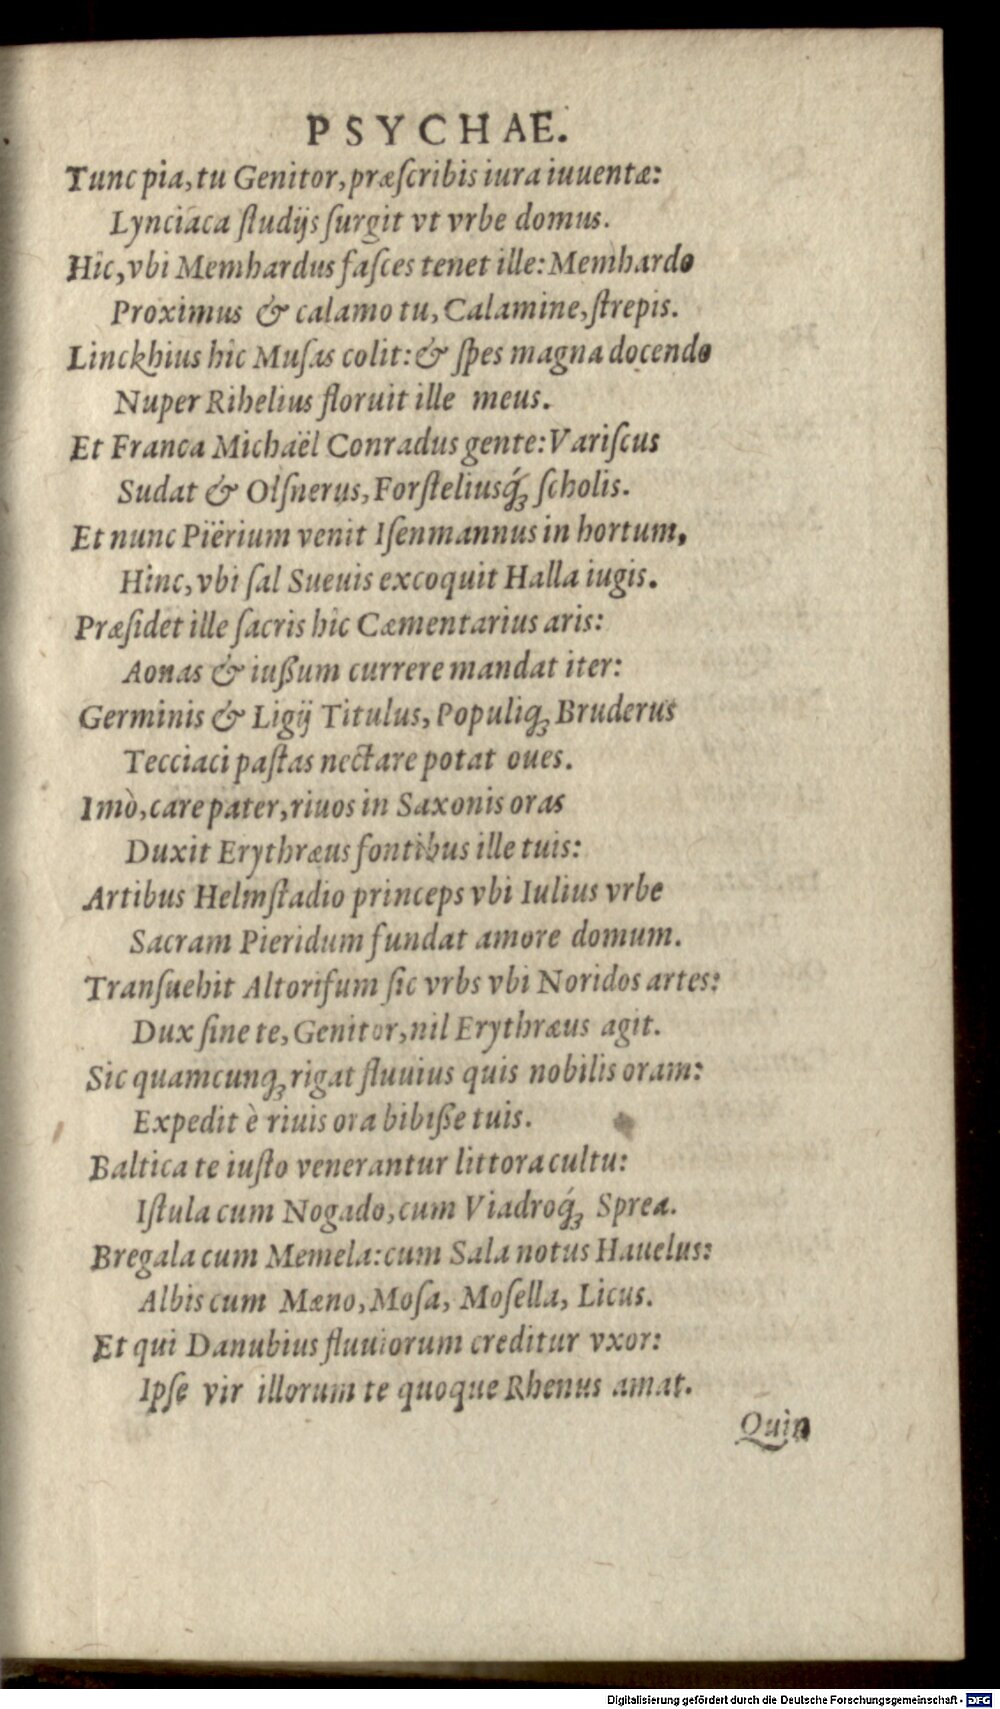 PSYCHAE.
Tunc pia, tu Genitor, præſcribis iura iuuentæ:
Lynciaca ſtudijs ſurgit vt vrbe domus.
Hîc, vbi Memhardus faſces tenet ille: Memhardo
Proximus & calamo tu, Calamine, ſtrepis.
Linckhius hîc Muſas colit: & ſpes magna docendo
Nuper Rihelius floruit ille meus.
Et Franca Michaël Conradus gente: Variſcus
Sudat & Olſnerus, Forſteliusq́ꝫ ſcholis.
Et nunc Piërium venit Iſenmannus in hortum,
Hinc, vbi ſal Sueuis excoquit Halla iugis.
Præſidet ille ſacris hîc Cæmentarius aris:
Aonas & iußum currere mandat iter:
Germinis & Ligij Titulus, Populiqꝫ Bruderus
Tecciaci paſtas nectare potat oues.
Imò, care pater, riuos in Saxonis oras
Duxit Erythræus fontibus ille tuis:
Artibus Helmſtadio princeps vbi Iulius vrbe
Sacram Pieridum fundat amore domum.
Tranſuehit Altorifum ſic vrbs vbi Noridos artes:
Dux ſine te, Genitor, nil Erythræus agit.
Sic quamcunqꝫ rigat fluuius quis nobilis oram:
Expedit è riuis ora bibiße tuis.
Baltica te iuſto venerantur littora cultu:
Iſtula cum Nogado, cum Viadroq́ꝫ Sprea.
Bregala cum Memela: cum Sala notus Hauelus:
Albis cum Mæno, Moſa, Moſella, Licus.
Et qui Danubius fluuiorum creditur vxor:
Ipſe vir illorum te quoque Rhenus amat.
Quin
Digitalisierung gefördert durch die Deutsche Forschungsgemeinschaft - DFG